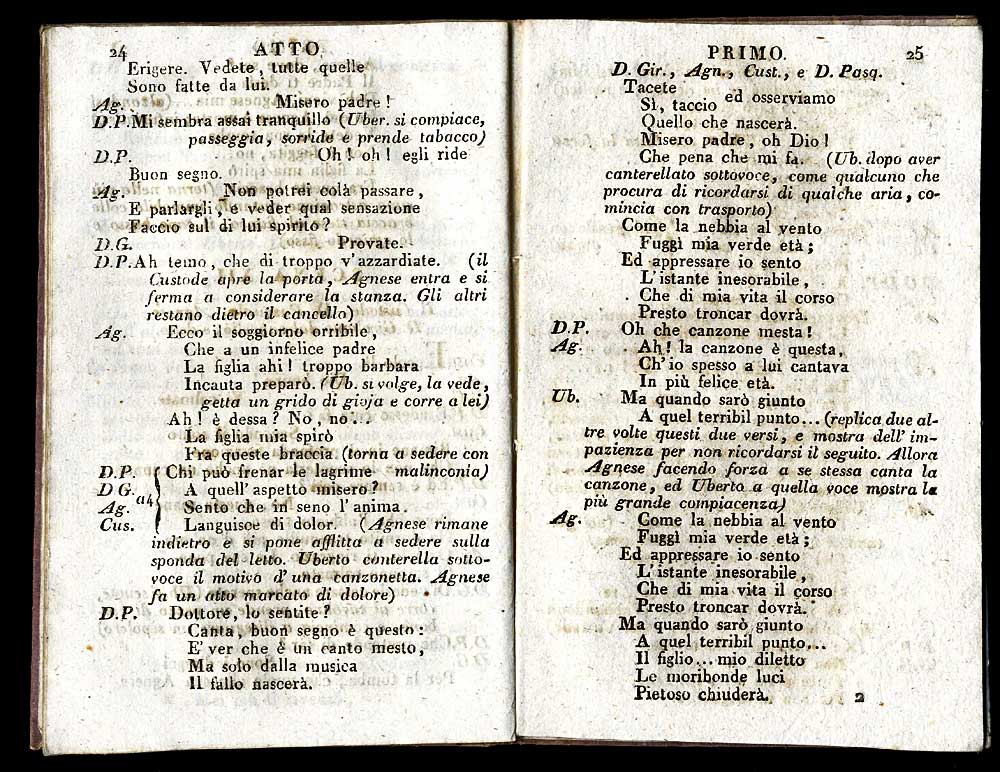 24 ATTO
Erigere. Vedete, tutte quelle
Sono fatte da lui.
Ag. Misero padre!
D.P. Mi sembra assai tranquillo (Uber. si compiace,
passeggia, sorride e prende tabacco)
D.P. Oh! oh! egli ride
Buon segno.
Ag. Non potrei colà passare,
E parlargli, e veder qual sensazione
Faccio sul di lui spirito?
D.G. Provate.
D.P. Ah temo, che di troppo v'azzardiate. (il
Custode apre la porta, Agnese entra e si
ferma a considerare la stanza. Gli altri
restano dietro il cancello)
Ag. Ecco il soggiorno orribile,
Che a un infelice padre
La figlia ahi! troppo barbara
Incauta preparò. (Ub. si volge, la vede,
getta un grido di gioja e corre a lei)
Ah! è dessa? No, no...
La figlia mia spirò
Fra queste braccia. (torna a sedere con
D.P. Chi può frenar le lagrime malinconia)
D G. A quell'aspetto misero?
a4
Ag. Sento che in seno l'anima.
Cus. Languisce di dolor. (Agnese rimane
indietro e si pone afflitta a sedere sulla
sponda del letto. Uberto canterella sotto-
voce il motivo d'una canzonetta. Agnese
fa un atto marcato di dolore)
D.P. Dottore, lo sentite?
Canta, buon segno è questo:
E' ver che è un canto mesto,
Ma solo dalla musica
Il fallo nascerà.
PRIMO. 25
D. Gir., Agn., Cust., e D. Pasq.
Tacete
ed osserviamo
Sì, taccio
Quello che nascerà.
Misero padre, oh Dio!
Che pena che mi fa. (Ub. dopo aver
canterellato sottovoce, come qualcuno che
procura di ricordarsi di qualche aria, co-
mincia con trasporto)
Come la nebbia al vento
Fuggì mia verde età;
Ed appressare io sento
L'istante inesorabile,
Che di mia vita il corso
Presto troncar dovrà.
D.P. Oh che canzone mesta!
Ag. Ah! la canzone è questa,
Ch'io spesso a lui cantava
In più felice età.
Ub. Ma quando sarò giunto
A quel terribil punto... (replica due al-
tre volte questi due versi, e mostra dell'im-
pazienza per non ricordarsi il seguito. Allora
Agnese facendo forza a se stessa canta la
canzone, ed Uberto a quella voce mostra la
più grande compiacenza)
Ag. Come la nebbia al vento
Fuggì mia verde età;
Ed appressare io sento
L'istante inesorabile,
Che di mia vita il corso
Presto troncar dovrà.
Ma quando sarò giunto
A quel terribil punto...
Il figlio... mio diletto
Le moribonde luci
Pietoso chiuderà. 2